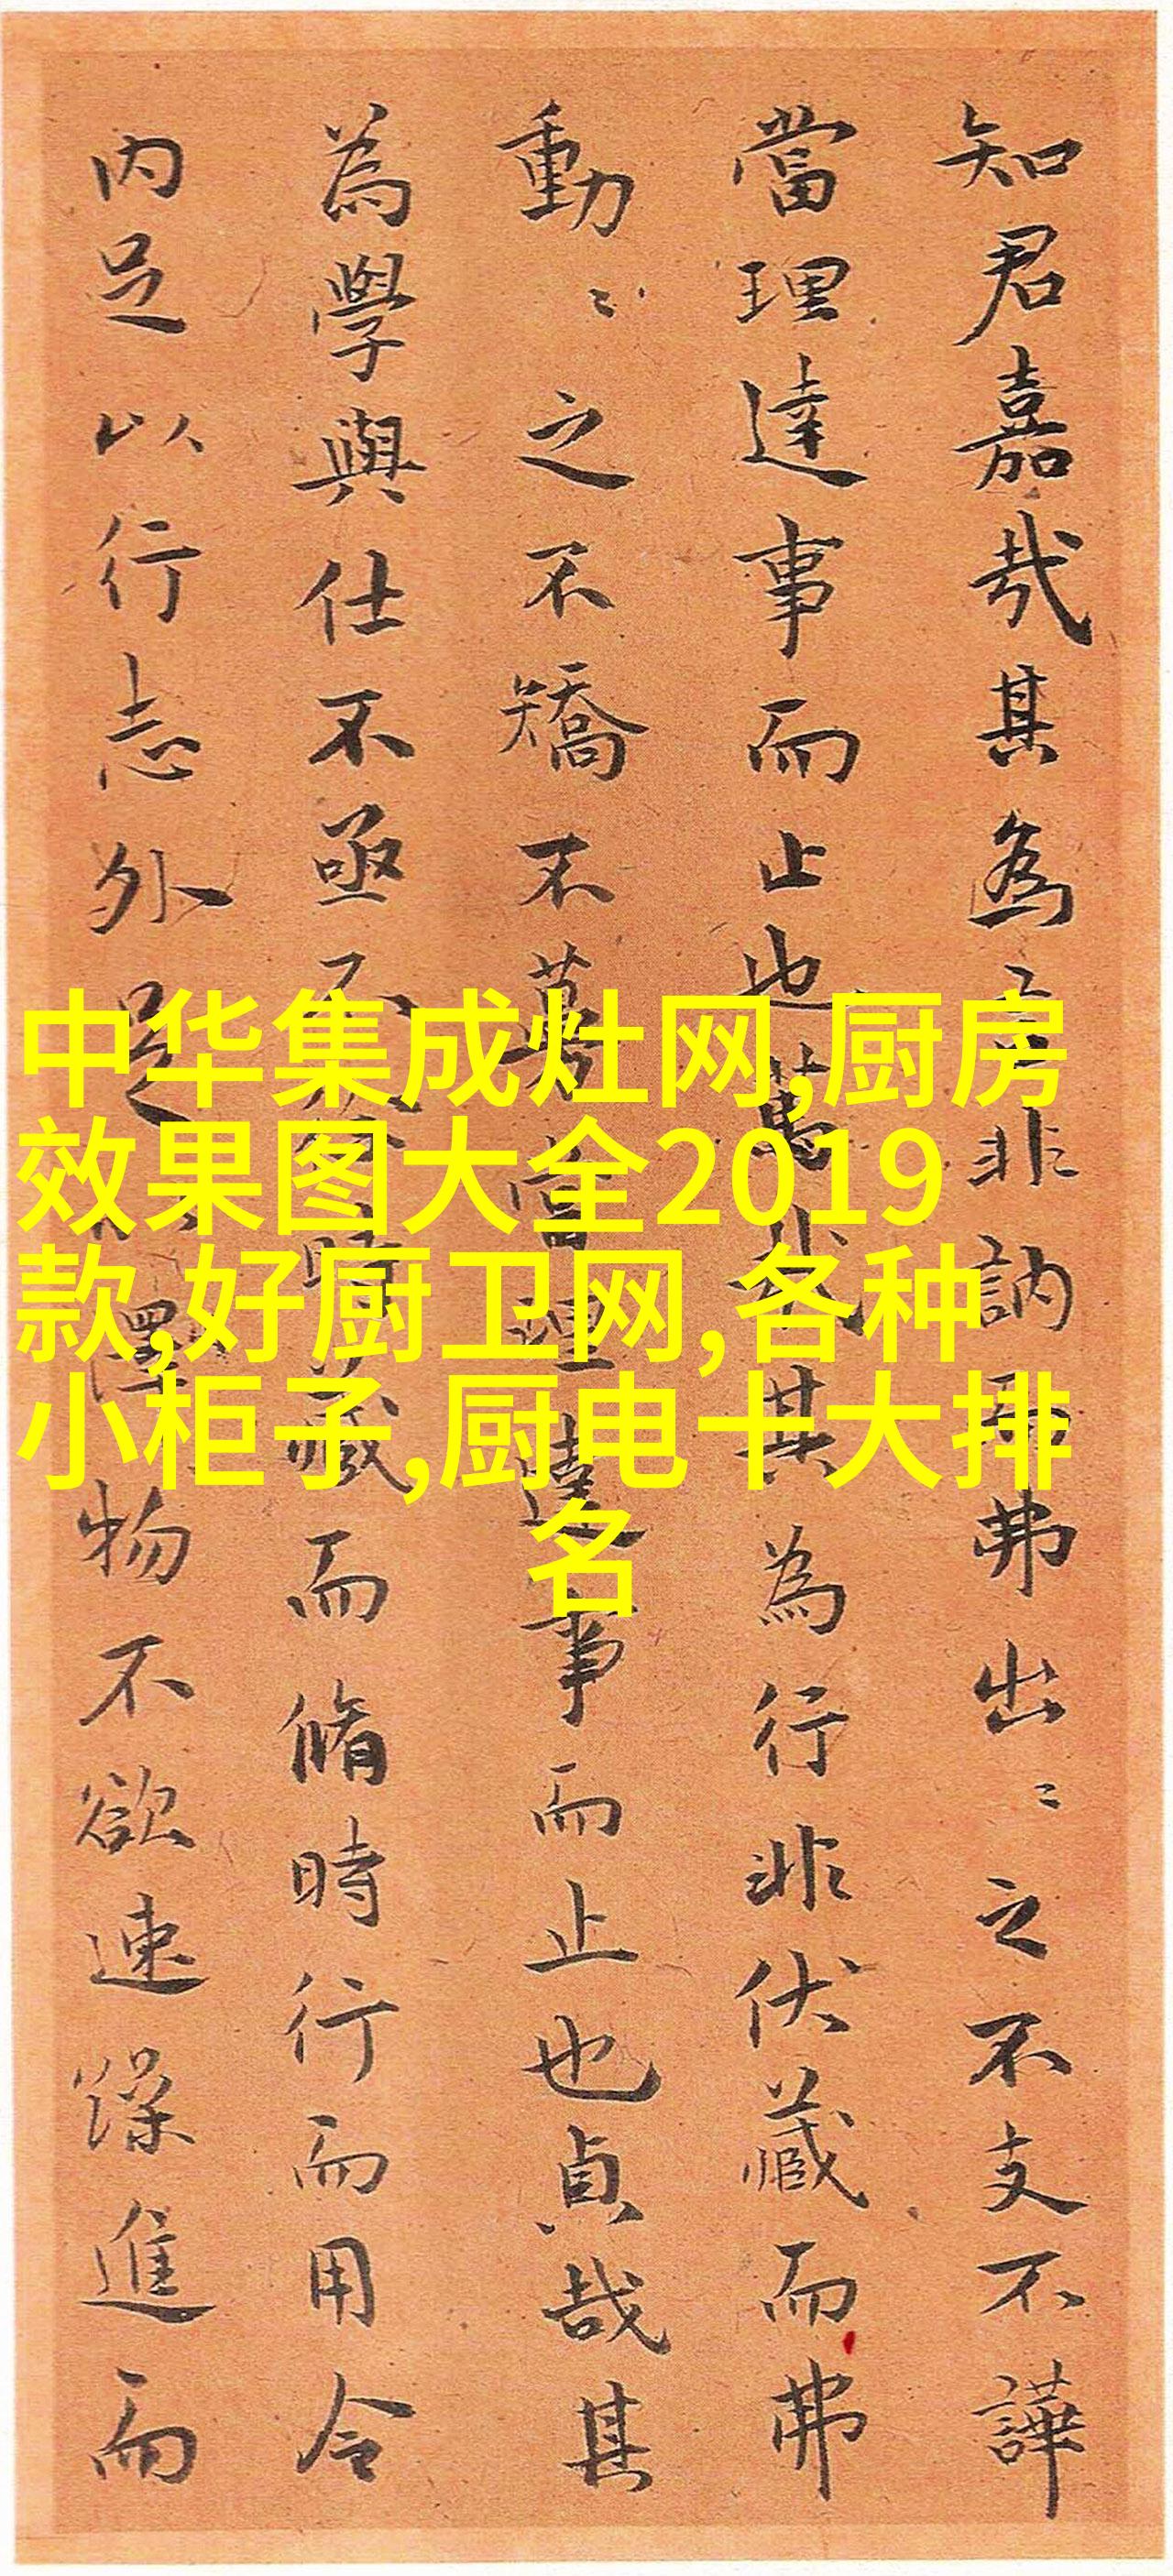 知君嘉哉其為言非訥而弗出〻之不支不譁
當理達事而止也蔿哉其為行非伏藏而弗
動〻之不矯不蔿當理達事而止也貞哉其
為學與仕不亟不
藏而脩時行而用令
内足以行志外足
澤物不欲速躁進而
中华集成灶网,厨房
效果图大全2019
款,好厨卫网,各种
小柜子,厨电十大排
名